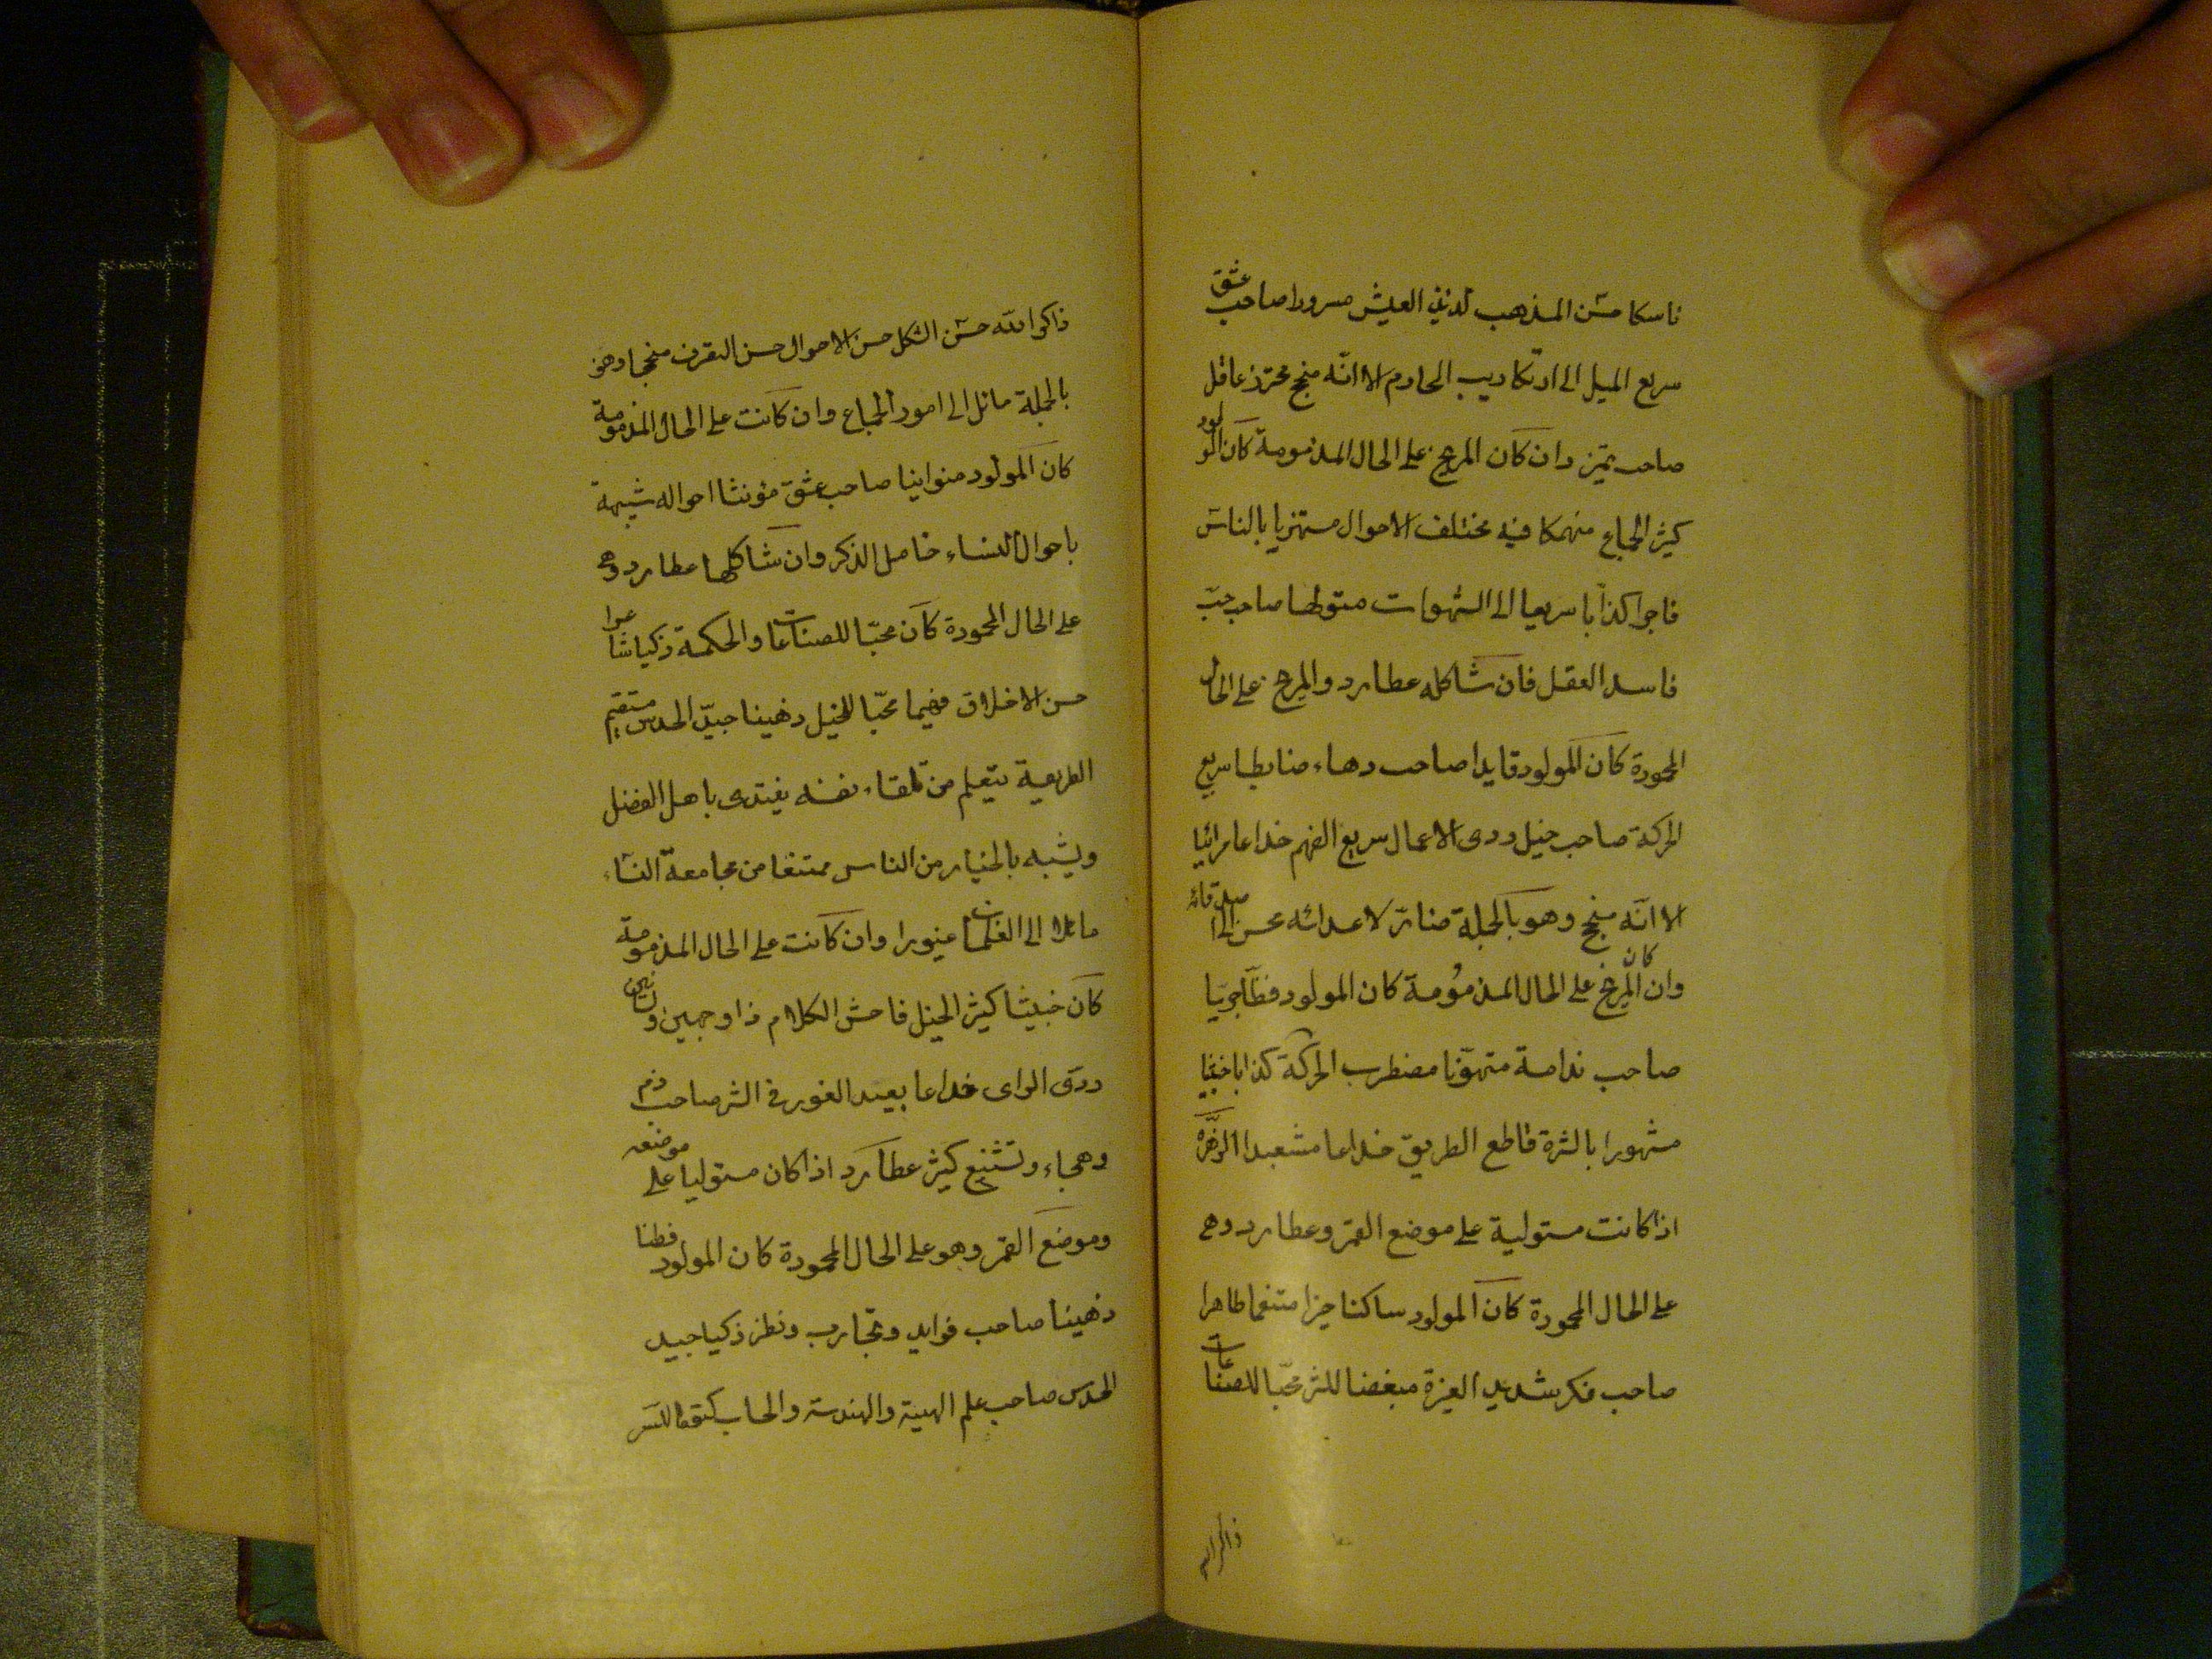 ناسكا حسن المذهب لذيذ العيش مسرورا صاحب عشق
سريع الميل الى ارتكاب المحارم الا انّه منجح محترز عاقل
صاحب تميز وان كان المريخ على الحال المذمومة كان المولود
كثير الجماع منهمكا فيه مختلف الاحوال مستهزيا بالناس
فاجرا كذابا سريعا الى الشهوات صاحب
فاسد العقل فان شاكله عطارد والمريخ على الحال
المحمودة كان المولود قايدا صاحب دهاء ضابطا سريع
الحركة صاحب حيل ردى الاعمال سريع الفهم خداعا مرائيا
الا انّه منجح وهو بالجملة ضارّ لاعدائه محسن الى اصدقائه
وان كان المريخ على الحال المذمومة كان المولود فظا جريّا
صاحب ندامة متهوّنا مضطرب الحركة كذابا خبيثا
مشهورا بالشرة قاطع الطريق خداعا مشعبدا الزهرة
اذا كانت مستولية على موضع القمر وعطارد وهى
على الحال المحمودة كان المولود ساكنا خيرا متنعما طاهرا
صاحب فكر شديد الغيرة مبغضا للشر محبّا للصناعات
ذاكرا لله
ذاكرا لله حسن الشكل حسن الاحوال حسن التصرف منجحا وهو
بالجملة مائل الى امور الجماع وان كانت على الحال المذمومة
كان المولود متوانيا صاحب عشق مؤنثا احواله شبيهة
باحوال النساء خامل الذكر وان شاكلها عطارد وهى
على الحال المحمودة كان محبّا للصناعات والحكمة ذكيا شاعرا
حسن الاخلاق فهيما محبّا للخيل ذهينا جيّد الحدس مستقيم
الطريقة يتعلم من تلقاء نفسه يقتدى باهل الفضل
ويشبه بالخيار من الناس ممتنعا من مجامعة النساء
مائلا الى الغلمان غيورا وان كانت على الحال المذمومة
كان خبيثا كثير الحيل فاحش الكلام ذا وجهين ولسانين
ردى الراى خداعا بعيد الغور فى الشر صاحب ذم
وهجاء وتشنيع كثير عطارد اذا كان مستوليا على موضعه
وموضع القمر وهو على الحال المحمودة كان المولود فطنا
ذهينا صاحب فوايد وتجارب ونظر ذكيا جيد
الحدس صاحب علم الهيئة والهندسة والحساب